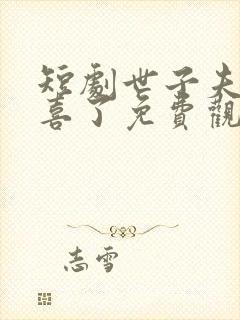 短劇世子夫
喜了免費觀
志雪